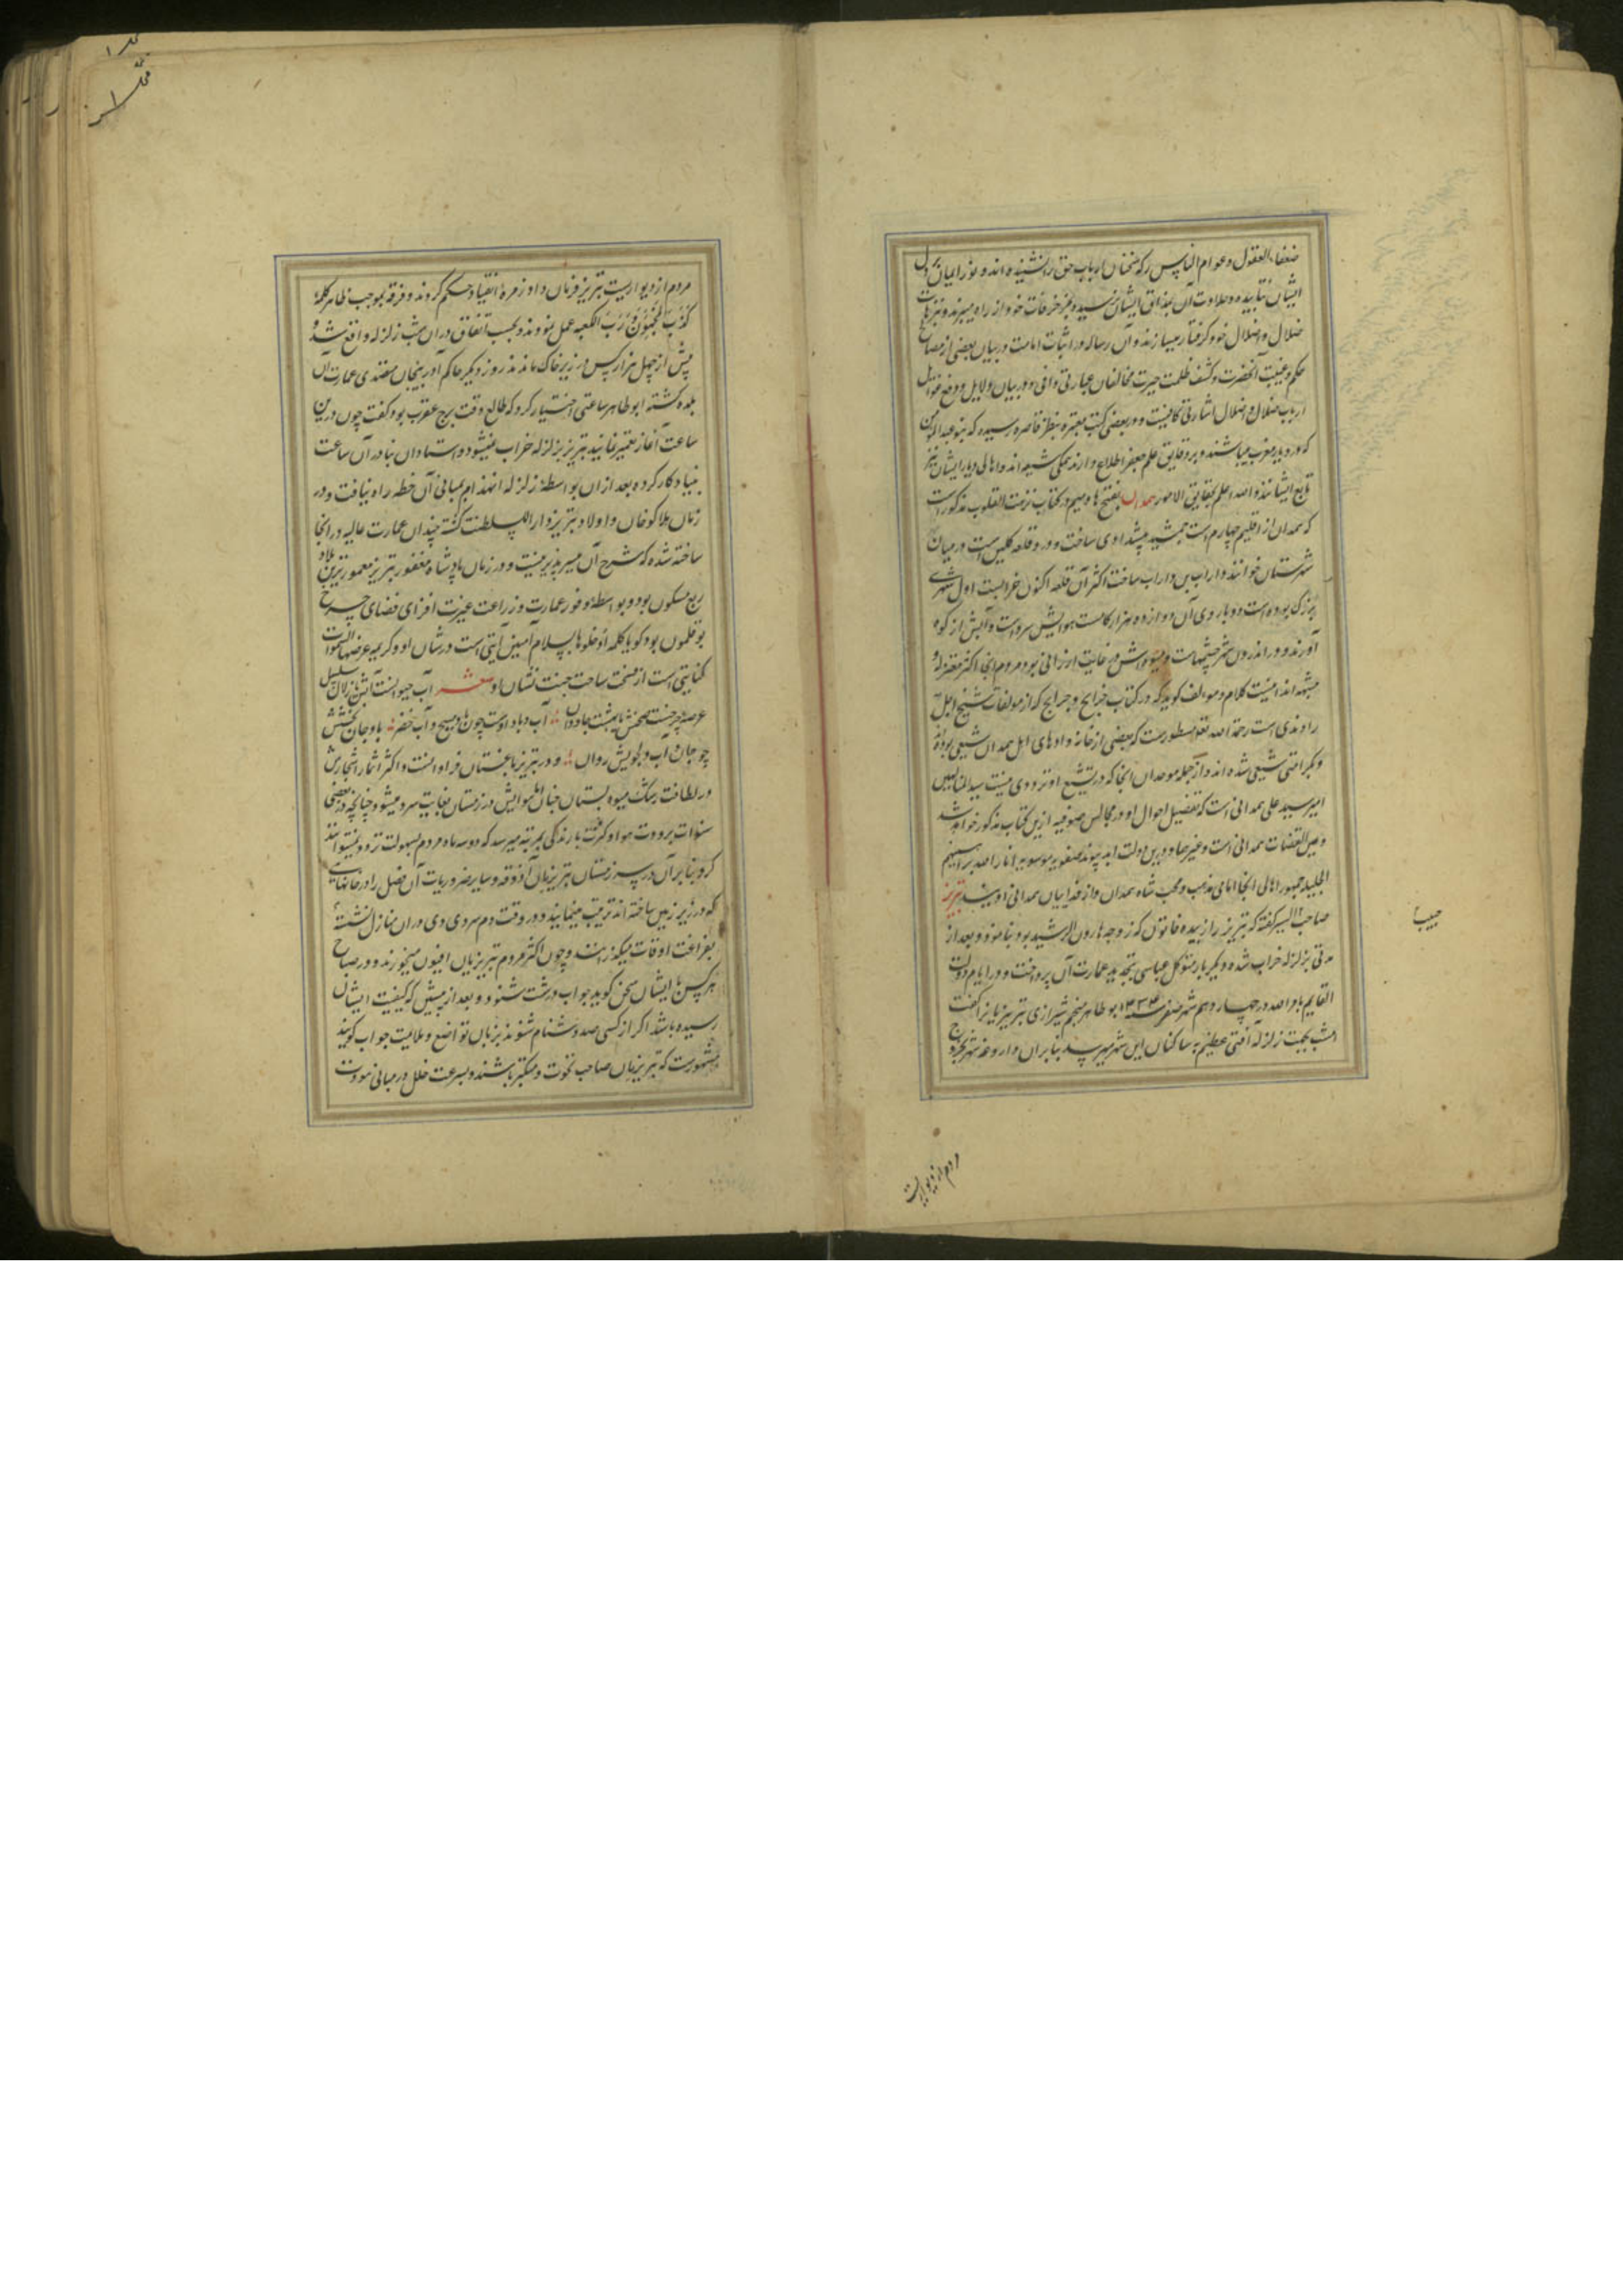 ضعفاء العقول و عوام الناس که سخنان ارباب حق را نشنیده اند و نور ایمان بر دل
ایشان نتابیده و حلاوت آن بمذاق ایشان نرسیده بمزخرفات خود از راه میبرند و بترهات
ضلال و اضلال خود گرفتار میسازند و آن رساله در اثبات امامت و در بیان بعضی از مصالح
حکم و غیبت آنحضرت و کشف ظلمت حیرت مخالفان عبارتی وافی و در بیان دلایل و دفع
ارباب ضلال و اضلال اشارتی کافیست و در بعضی کتب معتبره بنظر قاصر رسیده که بنو عبد المؤمن
که در دیار مغرب میباشند و بر دقایق علم جعفر اطلاع دارند همگی شیعه اند و اهالی دیار ایشان نیز
تابع ایشانند و الله اعلم بحقایق الامور همدان بفتح ها و میم در کتاب نزهت القلوب مذکور است
که همدان از اقلیم چهارم است جمشید پیشدادی ساخت و در و قلعه گلین است در میان
شهرستان خوانند داراب بن داراب ساخت اکثر آن قلعه اکنون خرابست اول شهری
بزرگ بوده است دو بازوی آن دوازده هزار گامست هوایش سرد است و آبش از کوه
آورند و در اندرون شهر چشمهاست و میوه اش در غایت ارزانی بود مردم آنجا اکثر معتزله و
مشبهه اند انتهی کلامه و مؤلف گوید که در کتاب خرایج و جرایح که از مؤلفات شیخ اجل
راوندی است رحمة الله علیه مسطورست که بعضی از خانواده های اهل همدان شیعی بوده
و یکبراتنی شیعی شده اند و از جمله موحدان آنجا که در تشیع او ترددی نیست سید المتألهین
امیر سید علی همدانی است که تفضیل احوال او در مجالس صوفیه ازین کتاب مذکور خواهد شد
و عین القضات همدانی است و غیرهما و درین دولت ابد پیوند صفویه موسویه انار الله براهینهم
الجلیه جمهور اهالی آنجا امامی مذهب و محب شاه همدان و از فداییان همدانی اویند تبریز
صاحب السیر گفته که تبریز را زبیده خاتون که زوجه هارون الرشید بود بنا نمود و بعد از
مدتی بزلزله خراب شده دیگر بار متوکل عباسی بتجدید عمارت آن پرداخت و در ایام دولت
القایم بامر الله در چهاردهم شهر صفر سنه ۴۳۴ ابو طاهر منجم شیرازی تبریزیانرا گفت
امشب بجهت زلزله آفتی عظیم به ساکنان این شهر میرسد بنابران داروغه شهر بخروج
حبیبا
مردم از دیواربست
مردم از دیواربست تبریز فرمان داد و زمره انقیاد حکم کردند و فرقه بموجب ظاهر کلمه
کذب المنجمون و رب الکعبه عمل نمودند و بحسب اتفاق در ان شب زلزله واقع شد و
بیش از چهل هزار کس در زیر خاک ماندند روز دیگر حاکم آذربیجان متصدی عمارت آن
بلده گشته ابو طاهر ساعتی اختیار کرد که طالع وقت برج عقرب بود و گفت چون درین
ساعت آغاز تعمیر نمایند تبریز بزلزله خراب نمیشود و استادان بنا در آن ساعت
بنیاد کار کرده بعد از ان بواسطه زلزله انهدام بمبانی آن خطه راه نیافت و در
زمان هلاکو خان و اولاد تبریز دار السلطنت گشته چندان عمارت عالیه در انجا
ساخته شده که شرح آن میسر پذیر نیست و در زمان پادشاه مغفور تبریز معمورترین بلاد
ربع مسکون بود و بواسطه وفور عمارت و زراعت غیرت افزای فضای چرخ
بوقلمون بود گویا کلمه ادخلوها بسلام آمنین آیتی است در شان او و کریمه عرضها السموات
کنایتی است از فسحت ساحت جنت نشان او شعر آب حیوانست آبش یا زلال سلسبیل
عرصه جنت صحنش یا بهشت جاودان آب و باد اوست چون عیسی و آب خضر باد جان بخشش
چو جان و آب دلجویش روان و در تبریز باغستان فراوانست و اکثر اثمار اشجارش
در لطافت رشک میوه بستان جنان اما هوایش در زمستان بغایت سرد میشود چنانچه در بعضی
سنوات برودت هوا و کثرت بارندگی بمرتبه میرسد که دو سه ماه مردم بسهولت تردد نمیتوانند
کرد بنابر آن در سر زمستان تبریزیان آذوقه و سایر ضروریات آن فصل را در خانهای
که در زیر زمین ساخته اند ترتیب مینمایند و در وقت دم سردی دی در ان منازل نشسته
بفراغت اوقات میگذرانند و چون اکثر مردم تبریزیان افیون میخورند و در صباح
هر کس با ایشان سخن گوید جواب درشت شنود و بعد از پیشین که کیفیت ایشان
رسیده باشد اگر از کسی صد دشنام شنوند بزبان تواضع و ملایمت جواب گویند
مشهورست که تبریزیان صاحب نخوت و متکبر باشند و بسرعت خلل در مبانی مودت